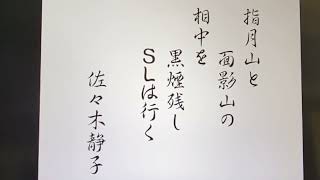 指月山と
面影山の
相中を
黒煙残し
SLは行く
佐々木静子